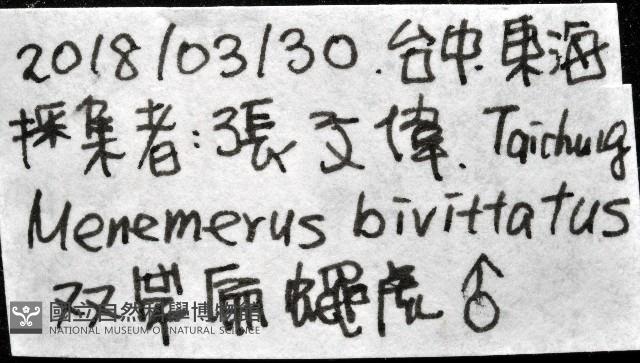 2018/03/30.台中.東海
採集者:張文偉. Taichung
Menemerus bivittatus
双帶扁蠅虎♂
國立自然科學博物館
NATIONAL MUSEUM OF NATURAL SCIENCE